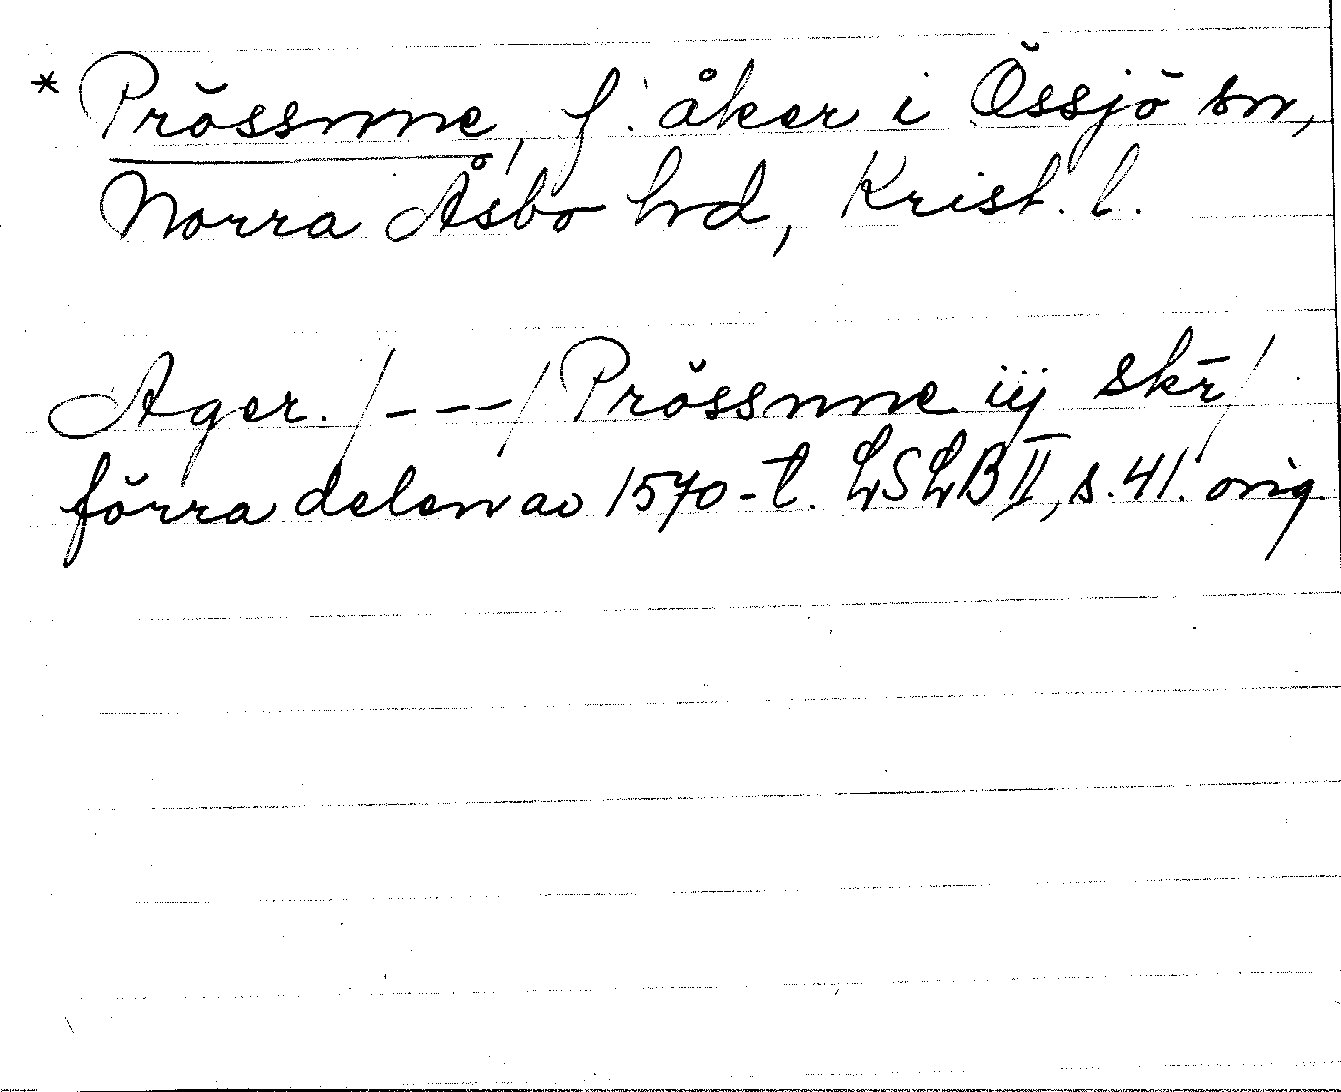 * Prössmne, f. åker i Össjö sn,
Norra Åsbo hd, Krist. l.
Ager. /---/ Prössmne iij skr̄/
förra delen av 1570-t. LSLB II, s. 41. orig